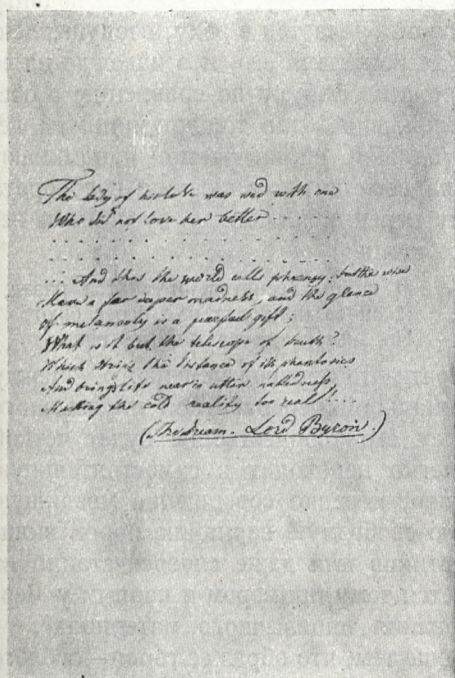 The lady of his love was wed with one
Who did not love her better. . . . . .
. . . . . . . . . . . .
. . . . . . . . . . . .
... And this the world calls phrensy; but the wise
Have a far deeper madness, and the glance
of melancoly is a fearful gift;
What is it but the telescope of truth?
Which strips the distance of its phantasies
And brings life near in utter nakedness,
Making the cold reality too real!...
(The Dream. Lord Byron.)